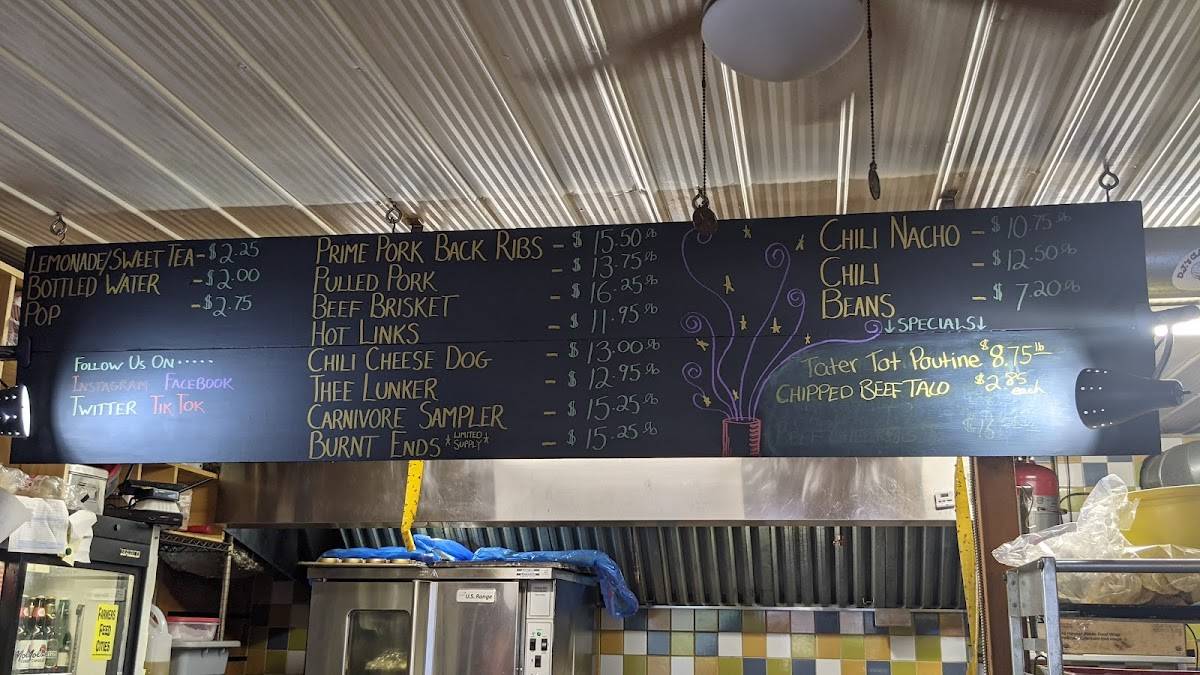 LEMONADE/SWEET TEA - $2.25
BOTTLED WATER - $2.00
POP - $2.75
FOLLOW US ON.....
INSTAGRAM FACEBOOK
TWITTER TIK TOK
PRIME PORK BACK RIBS - $15.50 lb
PULLED PORK - $13.75 lb
BEEF BRISKET - $16.25 lb
HOT LINKS - $11.95 lb
CHILI CHEESE DOG - $13.00 lb
THEE LUNKER - $12.95 lb
CARNIVORE SAMPLER - $15.25 lb
BURNT ENDS *LIMITED SUPPLY* - $15.25 lb
CHILI NACHO - $10.75 lb
CHILI - $12.50 lb
BEANS - $7.20 lb
↓SPECIALS↓
Tater Tot Poutine $8.75 lb
CHIPPED BEEF TACO $2.85 each
U.S. Range
FARMERS
FEED
CITIES